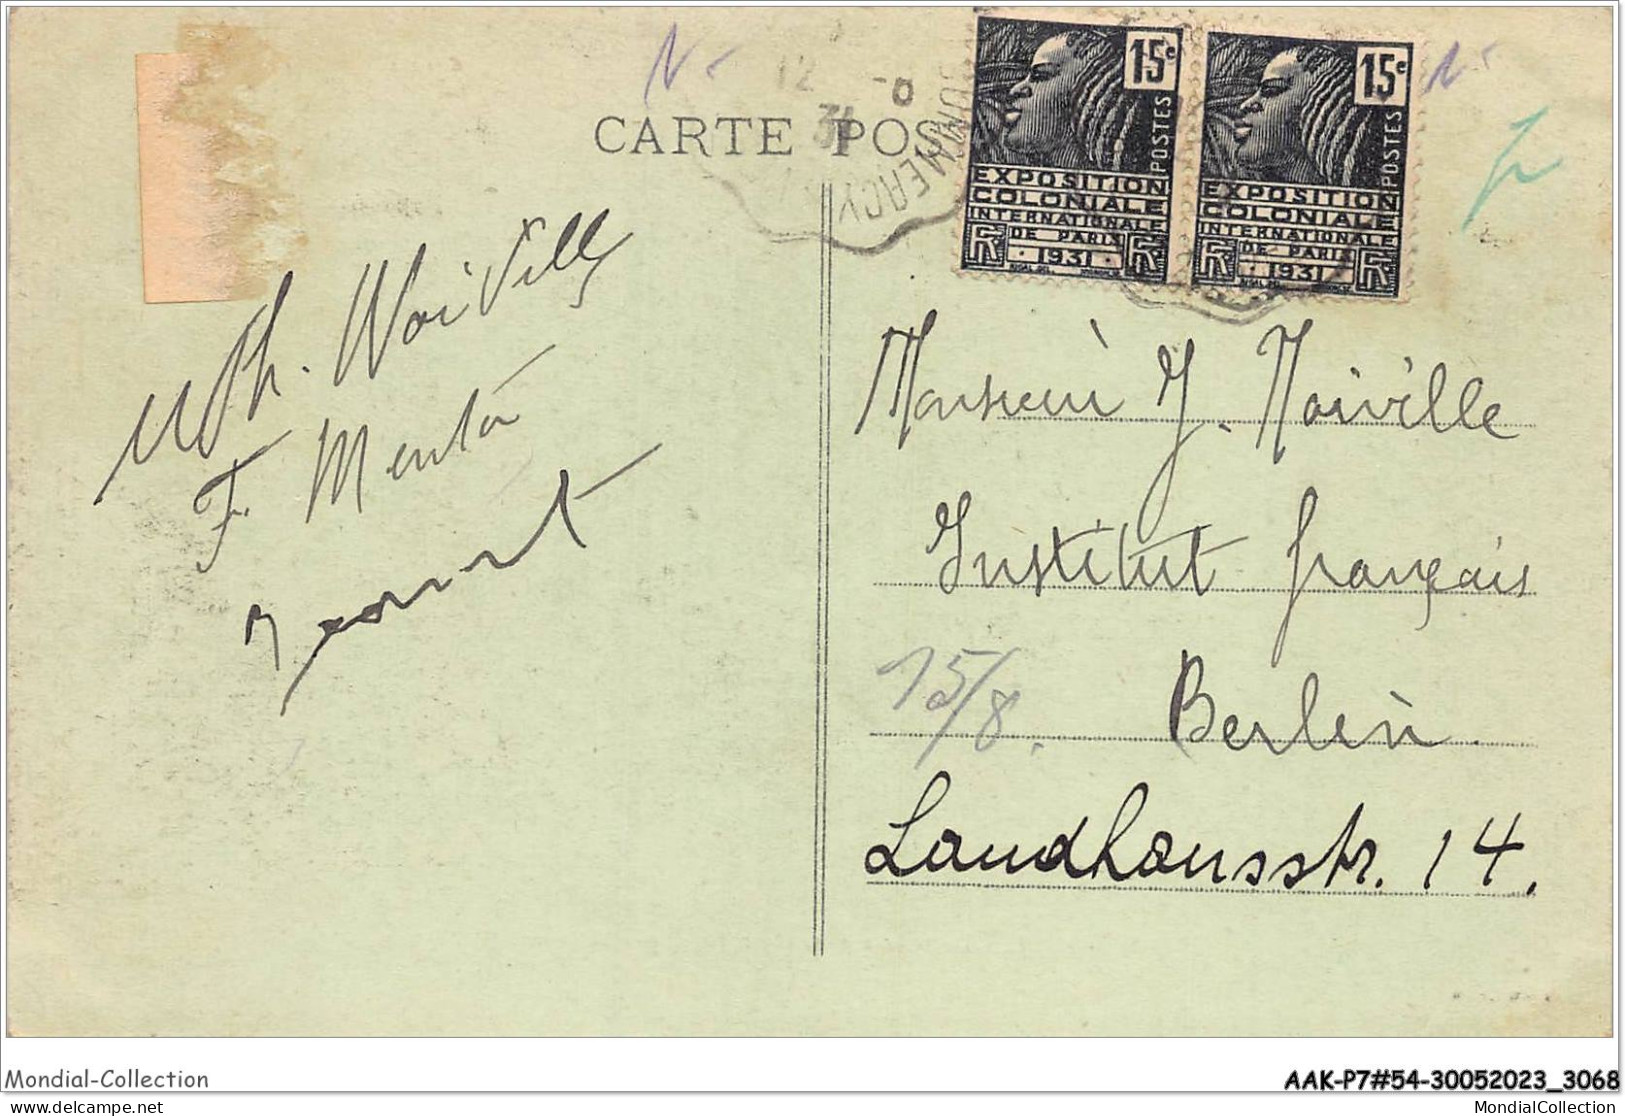 CARTE POS
15c
POSTES
EXPOSITION
COLONIALE
INTERNATIONALE
DE PARIS
1931
15c
POSTES
EXPOSITION
COLONIALE
INTERNATIONALE
DE PARIS
1931
12
31
Noiville
F. Menta
Monsieur J. Noiville
Institut français
15/8.
Berlin
Landhausstr. 14.
Mondial-Collection
AAK-P7#54-30052023_3068
Mondial-Collection.com
MondialCollection